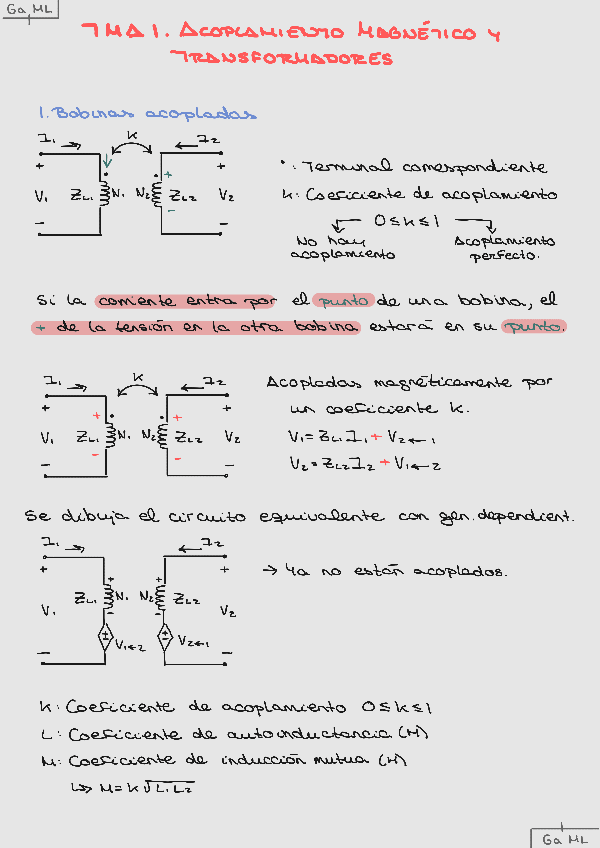 Ga ML
TMA 1. ACOPLAMIENTO MAGNÉTICO Y
TRANSFORMADORES
1. Bobinas acopladas
I₁ K I₂
+ + +
V₁ ZL₁ N₁ N₂ ZL₂ V₂
- - -
• : Terminal correspondiente
K: Coeficiente de acoplamiento
0 ≤ K ≤ 1
No hay acoplamiento
Acoplamiento perfecto.
Si la corriente entra por el punto de una bobina, el
+ de la tensión en la otra bobina estará en su punto.
I₁ K I₂
+ + + +
V₁ ZL₁ N₁ N₂ ZL₂ V₂
- - - -
Acopladas magnéticamente por
un coeficiente K.
V₁ = ZL₁ I₁ + V₂←₁
V₂ = ZL₂ I₂ + V₁←₂
Se dibuja el circuito equivalente con gen. dependient.
I₁ I₂
+ + + +
V₁ ZL₁ N₁ N₂ ZL₂ V₂
- -
+ V₁←₂ + V₂←₁
- -
→ Ya no están acoplados.
K: Coeficiente de acoplamiento 0 ≤ K ≤ 1
L: Coeficiente de autoinductancia (H)
M: Coeficiente de inducción mutua (H)
↳ M = K √L₁ L₂
Ga ML